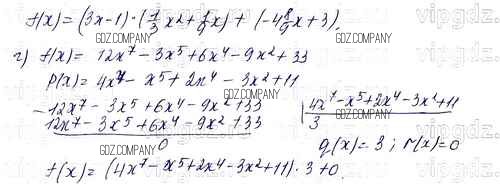 f(x)=(3x-1)·(1/3 x2+1/9 x)+(-4 8/9 x+3),
GDZ.COMPANY
г) f(x)= 12x⁷-3x⁵+6x⁴-9x²+33
GDZ.COMPANY
p(x)=4x⁷-x⁵+2x⁴-3x²+11
GDZ.COMPANY
-12x⁷-3x⁵+6x⁴-9x²+33 | 4x⁷-x⁵+2x⁴-3x²+11
12x⁷-3x⁵+6x⁴-9x²+33 3
0 q(x)=3; r(x)=0
GDZ.COMPANY
f(x)=(4x⁷-x⁵+2x⁴-3x²+11)·3+0.
GDZ.COMPANY